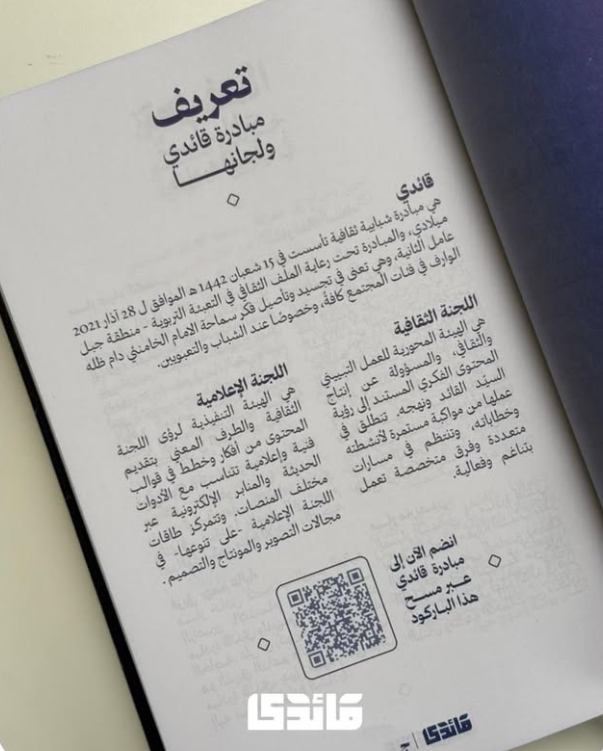 تعريف
مبادرة قائدي
ولجانهـــا
قائدي
هي مبادرة شبابية ثقافية تأسست في 15 شعبان 1442 هـ الموافق ل 28 آذار 2021
ميلادي، والمبادرة تحت رعاية الملف الثقافي في التعبئة التربوية - منطقة جبل
عامل الثانية، وهي تعنى في تجسيد وتأصيل فكر سماحة الامام الخامنئي دام ظله
الوارف في فئات المجتمع كافةً، وخصوصًا عند الشباب والتعبويين.
اللجنة الثقافية
هي الهيئة المحورية للعمل التبييني
والثقافي، والمسؤولة عن إنتاج
المحتوى الفكري المستند إلى رؤية
السيّد القائد ونهجه. تنطلق في
عملها من مواكبة مستمرة لأنشطته
وخطاباته، وتنتظم في مسارات
متعددة وفرق متخصصة تعمل
بتناغم وفعالية.
اللجنة الإعلامية
هي الهيئة التنفيذية لرؤى اللجنة
الثقافية والطرف المعني بتقديم
المحتوى من أفكار وخطط في قوالب
فنية وإعلامية تتناسب مع الأدوات
الحديثة والمنابر الإلكترونية عبر
مختلف المنصات. وتتمركز طاقات
اللجنة الإعلامية -على تنوعها- في
مجالات التصوير والمونتاج والتصميم.
انضم الآن إلى
مبادرة قائدي
عبر مسح
هذا الباركود
قائدي | ج
قائدي